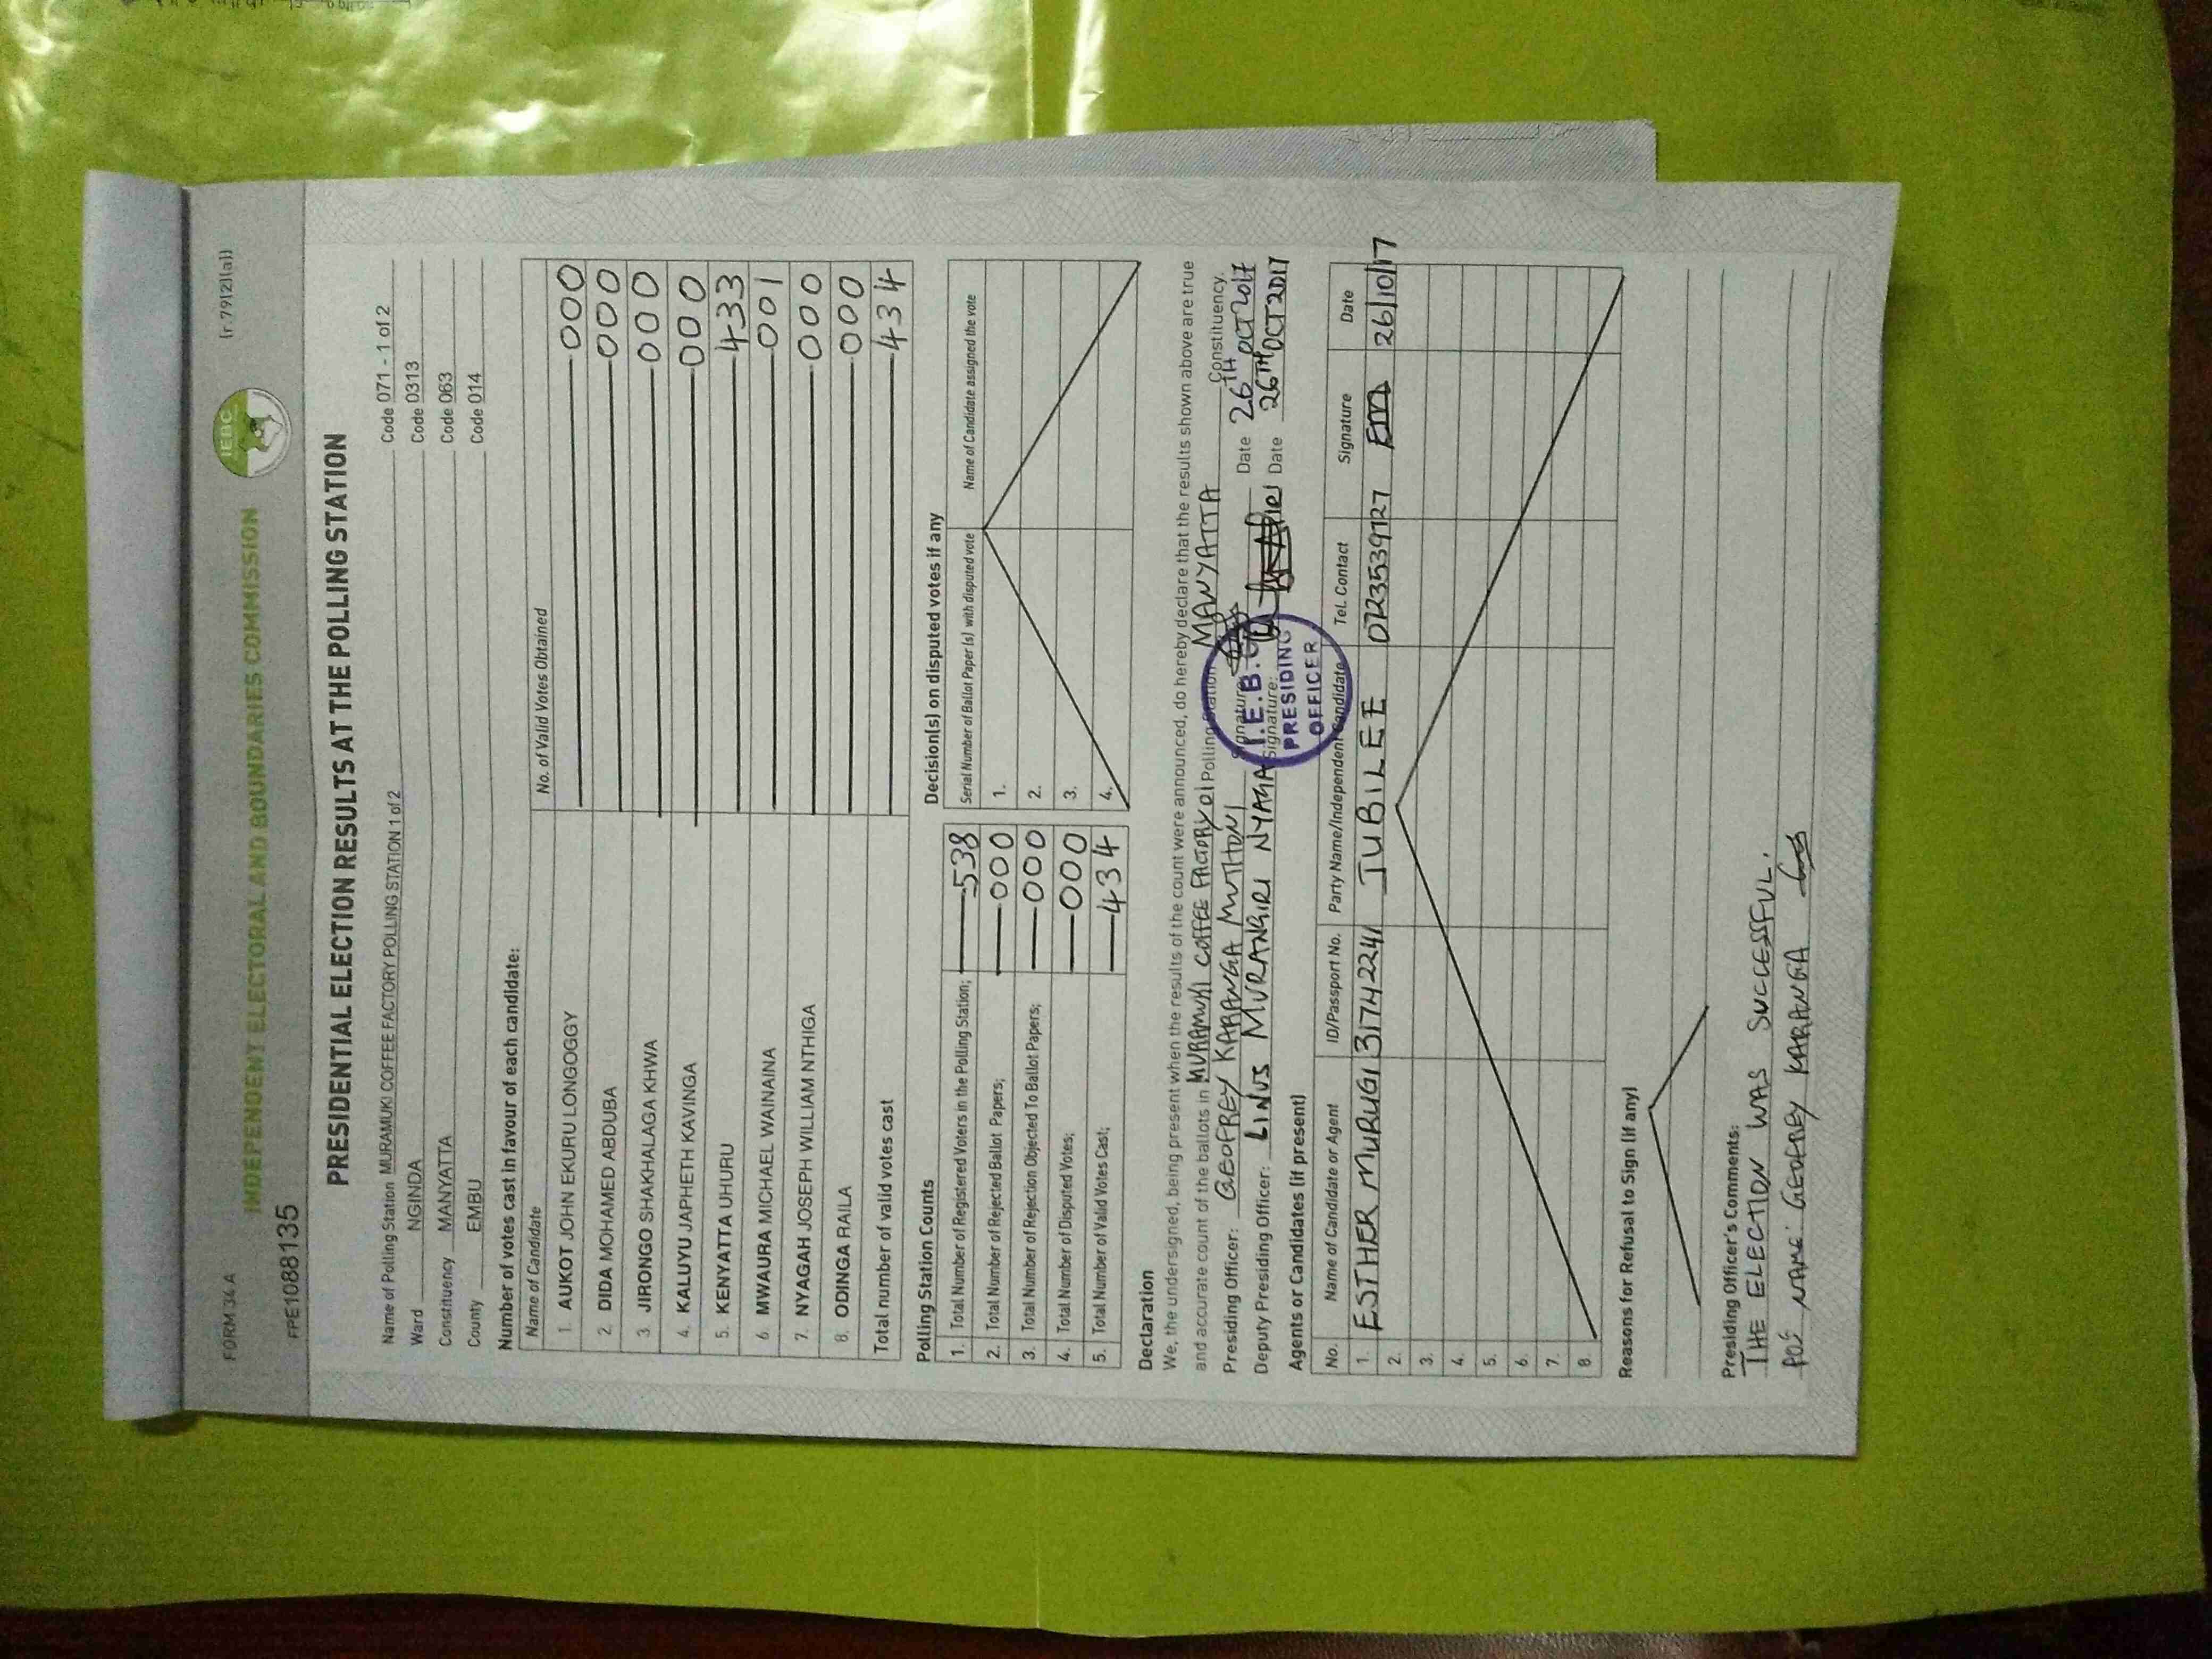 FORM 34 A
(r 79(2)(a))
INDEPENDENT ELECTORAL AND BOUNDARIES COMMISSION
IEBC
FPE1088135
PRESIDENTIAL ELECTION RESULTS AT THE POLLING STATION
Name of Polling Station MURAMUKI COFFEE FACTORY POLLING STATION 1 of 2 Code 071 - 1 of 2
Ward NGINDA Code 0313
Constituency MANYATTA Code 063
County EMBU Code 014
Number of votes cast in favour of each candidate:
Name of Candidate No. of Valid Votes Obtained
1. AUKOT JOHN EKURU LONGOGGY 000
2. DIDA MOHAMED ABDUBA 000
3. JIRONGO SHAKHALAGA KHWA 000
4. KALUYU JAPHETH KAVINGA 000
5. KENYATTA UHURU 433
6. MWAURA MICHAEL WAINAINA 001
7. NYAGAH JOSEPH WILLIAM NTHIGA 000
8. ODINGA RAILA 000
Total number of valid votes cast 434
Polling Station Counts
1. Total Number of Registered Voters in the Polling Station; 538
2. Total Number of Rejected Ballot Papers; 000
3. Total Number of Rejection Objected To Ballot Papers; 000
4. Total Number of Disputed Votes; 000
5. Total Number of Valid Votes Cast; 434
Decision(s) on disputed votes if any
Serial Number of Ballot Paper (s) with disputed vote Name of Candidate assigned the vote
1.
2.
3.
4.
Declaration
We, the undersigned, being present when the results of the count were announced, do hereby declare that the results shown above are true
and accurate count of the ballots in MURAMUKI COFFEE FACTORY 01 Polling Station, MANYATTA Constituency.
Presiding Officer: GEOFREY KARANGA MUTHONI Signature: Date 26TH OCT 2017
Deputy Presiding Officer: LINUS MURANGIRI NYAGA Signature: Date 26TH OCT 2017
I.E.B.C
PRESIDING
OFFICER
Agents or Candidates (if present)
No. Name of Candidate or Agent ID/Passport No. Party Name/Independent Candidate Tel. Contact Signature Date
1. ESTHER MURUGI 31742241 JUBILEE Em 26/10/17
2.
3.
4.
5.
6.
7.
8.
Reasons for Refusal to Sign (if any)
Presiding Officer's Comments:
THE ELECTION WAS SUCCESSFUL.
PO'S NAME: GEOFREY KARANGA